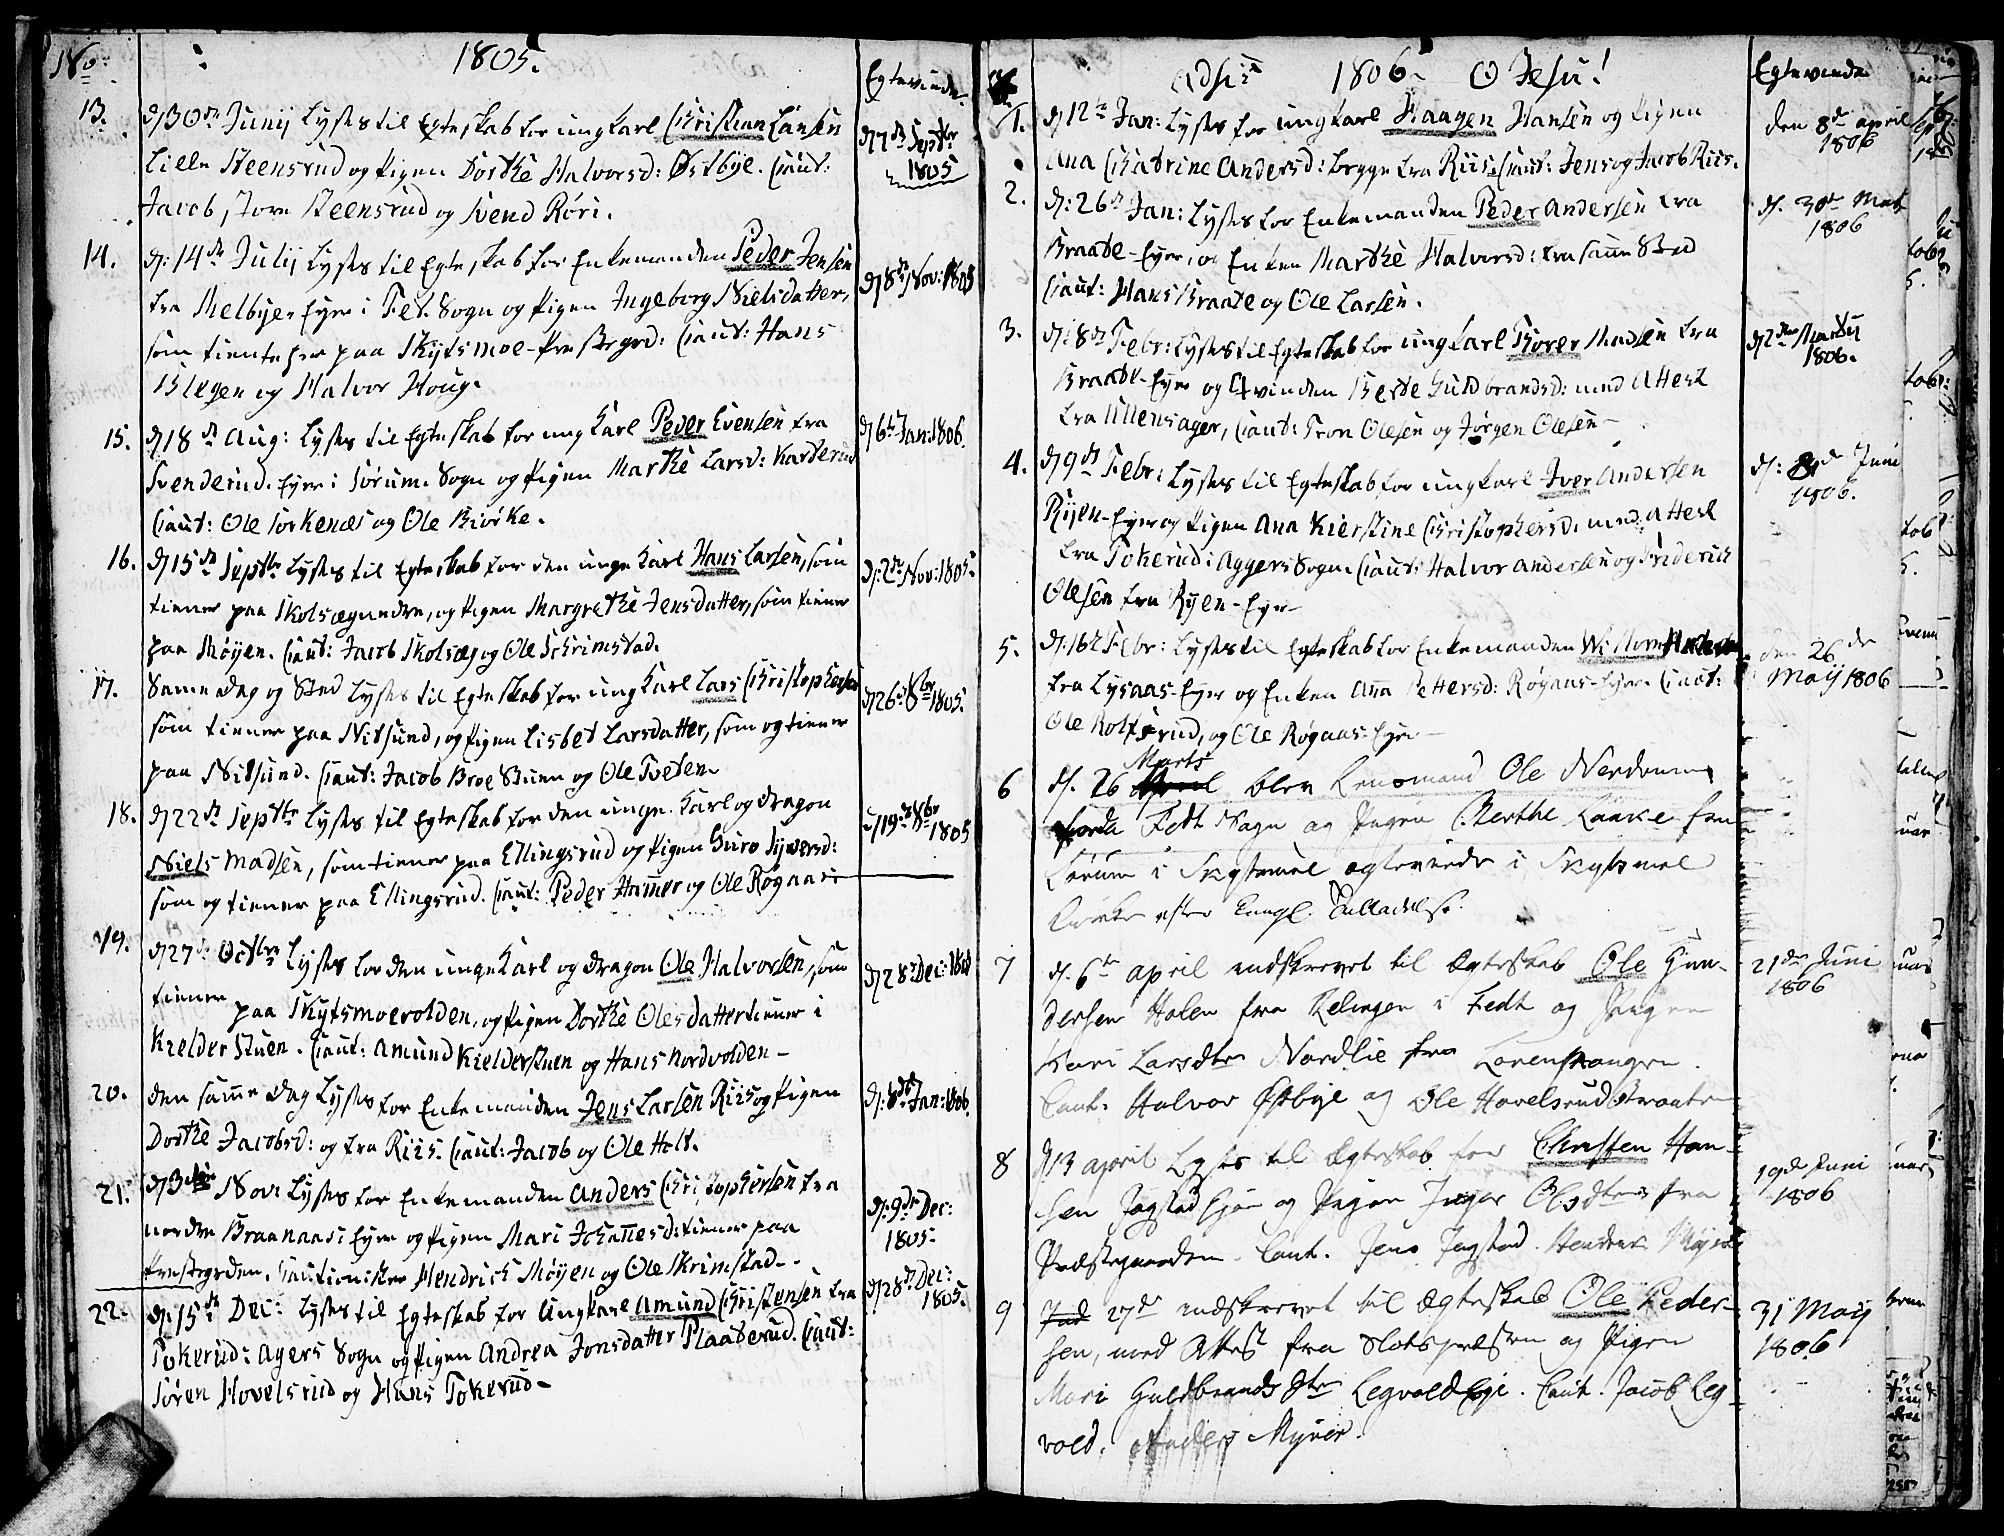 No: 1805. Egteviede.
13. d: 30te Junij Lystes til Egteskab for ungkarl Christian Larsen
Lille Steensrud og Pigen Dorthe Halvorsd: Østbye. Caut:
Jacob Store Steensrud og Svend Røri.
d 7de Septbr
1805
14. d: 14de Julij Lystes til Egteskab for Enkemanden Peder Jensen
fra Melbye-Eyer i Fet-Sogn og Pigen Ingeborg Nielsdatter,
som tiente her paa Skytsmoe-Prestegrd: Caut: Hans
Blegen og Halvor Houg.
d 8de Nov: 1805
15. d 18de Aug: Lystes til Egteskab for ung Karl Peder Evensen fra
Svenderud-Eyer i Sørum-Sogn og Pigen Marthe Larsd: Karterud
Caut: Ole Torkenæs og Ole Biørke.
d 6te Jan: 1806.
16. d 15de Septbr Lystes til Egteskab for den unge Karl Hans Larsen, som
tiener paa Skolsæg nedre, og Pigen Margrethe Jensdatter, som tiener
paa Møyen. Caut: Jacob Skolsæg og Ole Schrimstad.
d: 2de Nov: 1805.
17. Samme dag og Sted Lystes til Egteskab for ung Karl Lars Christophersen
som tiener paa Nitsund, og Pigen Lisbet Larsdatter, som og tiener
paa Nitsund. Caut: Jacob Broe Stuen og Ole Tveten.
d 26de 8br 1805.
18. d 22de Septbr Lystes til Egteskab for den unge Karl og dragon
Niels Madsen, som tiener paa Ellingsrud og Pigen Guro Syversd:
som og tiener paa Ellingsrud. Caut: Peder Hamer og Ole Røgaas
d 19de 8br
1805
19. d 27de Octbr Lystes for den unge Karl og dragon Ole Halvorsen, som
tiener paa Skytsmoevolden, og Pigen Dorthe Olesdatter tiener i
Kielder Stuen. Caut: Amund Kielderstuen og Hans Nordvolden-
d 28de Dec: 1805
20. den samme dag Lystes for Enkemanden Jens Larsen Riis og Pigen
Dorthe Jacobsd: og fra Riis. Caut: Jacob og Ole Holt.
d: 8de Jan: 1806.
21. d 3die Nov: Lystes for Enkemanden Anders Christophersen fra
nordre Braanaas: Eyer og Pigen Mari Johannesd: tiener paa
Prestegrden. Cautionister Hendrich Møyen og Ole Skrimstad.
d: 9de Dec:
1805.
22. d: 15de Dec: Lystes til Egteskab for ungkarl Amund Christensen fra
Tokerud: Agers Sogn og Pigen Andrea Jonsdatter Plaaterud. Caut:
Søren Hovelsrud og Hans Tokerud-
d 28de Dec:
1805.
Adsis 1806. O Jesu! Egteviede
1. d 12te Jan: Lystes for ungkarl Haagen Hansen og Pigen
Ana Chatrine Andersd: begge fra Riis. Caut: Jens og Jacob Riis.
den 8de april
1806
2. d: 26de Jan: Lystes for Enkemanden Peder Andersen fra
Braate-Eyer, og Enken Marthe Halvorsd: fra samme Sted
Caut: Hans Braate og Ole Larsen.
d. 30de Mart
1806
3. d: 8de Febr: Lystes til Egteskab for ungkarl Thorer Madsen fra
Braate-Eyer og Qvinden Berte Guldbrandsd: med Attest
fra Ullensager, Caut: Tron Olesen og Jørgen Olesen-
d 2den Martii
1806.
4. d 9de Febr: Lystes til Egteskab for ungkarl Iver Andersen
Ryen-Eyer og Pigen Ana Kierstine Christophersd: med Attest
fra Tokerud: Aggers Sogn. Caut: Halvor Andersen og Friderich
Olesen fra Ryen-Eyer-
d: Juni
1806.
5. d: 16de Febr: Lystes til Egteskab for Enkemanden
fra Lysaas-Eyer og Enken Ana Pettersd: Røgaas-Eyer. Caut:
Ole Rolfsrud, og Ole Røgaas-Eyer-
den 26de
Maÿ 1806
6 d. 26 April Marts blev Lensmand Ole Nerdrum
Fedt Sogn og Pigen Berthe Laake fra
Sørum i Skytsmoe egteviede i Skytsmoe
Kirke efter Kongl. Tilladelse.
7 d. 6te april indskrevet til Egteskab Ole Gun-
dersen Holen fra Relingen i Fedt og Pigen
Kari Larsdtr Nordlie fra Lørenskougen.
Caut: Halvor Østbye og Ole Hovelsrud Braaten
21de Juni
1806
8 d 13 april Lystes til Egteskab for Christen Han-
sen Jogstad Eje og Pigen Inger Olsdtr fra
Præstegaarden. Caut. Jens Jogstad. Hendrik Møyen
19de Juni
1806
9 27de indskrevet til Egteskab Ole Peder-
sen, med Attest fra Slotspræsten og Pigen
Mari Guldbrandsdtr Legvold Eje. Caut. Jacob Leg-
vold, Anders Myrer.
31 Maÿ
1806